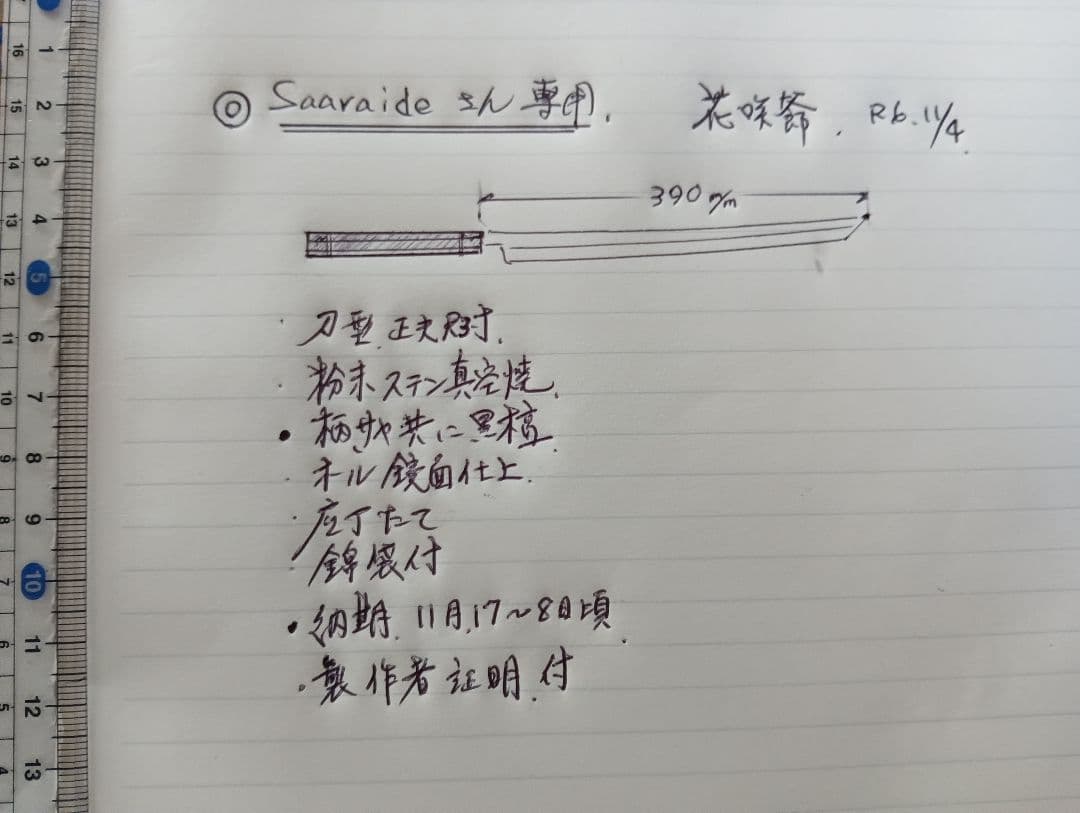 ◎ Saaraideさん専用. 花咲爺. R6.11/4.
390m/m
・刀型.正夫尺3寸.
・粉末ステン真空焼.
・柄サヤ共に黒檀.
・オール鏡面仕上.
・庖丁たて
・錦袋付
・納期.11月.17〜8日頃.
・製作者証明.付
1
2
3
4
5
6
7
8
9
10
11
12
13
16
15
14
13
12
11
10
9
8
7
6
5
4